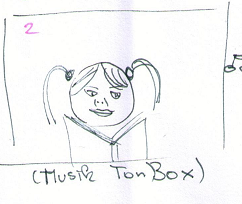 2
(Musik TonBox)